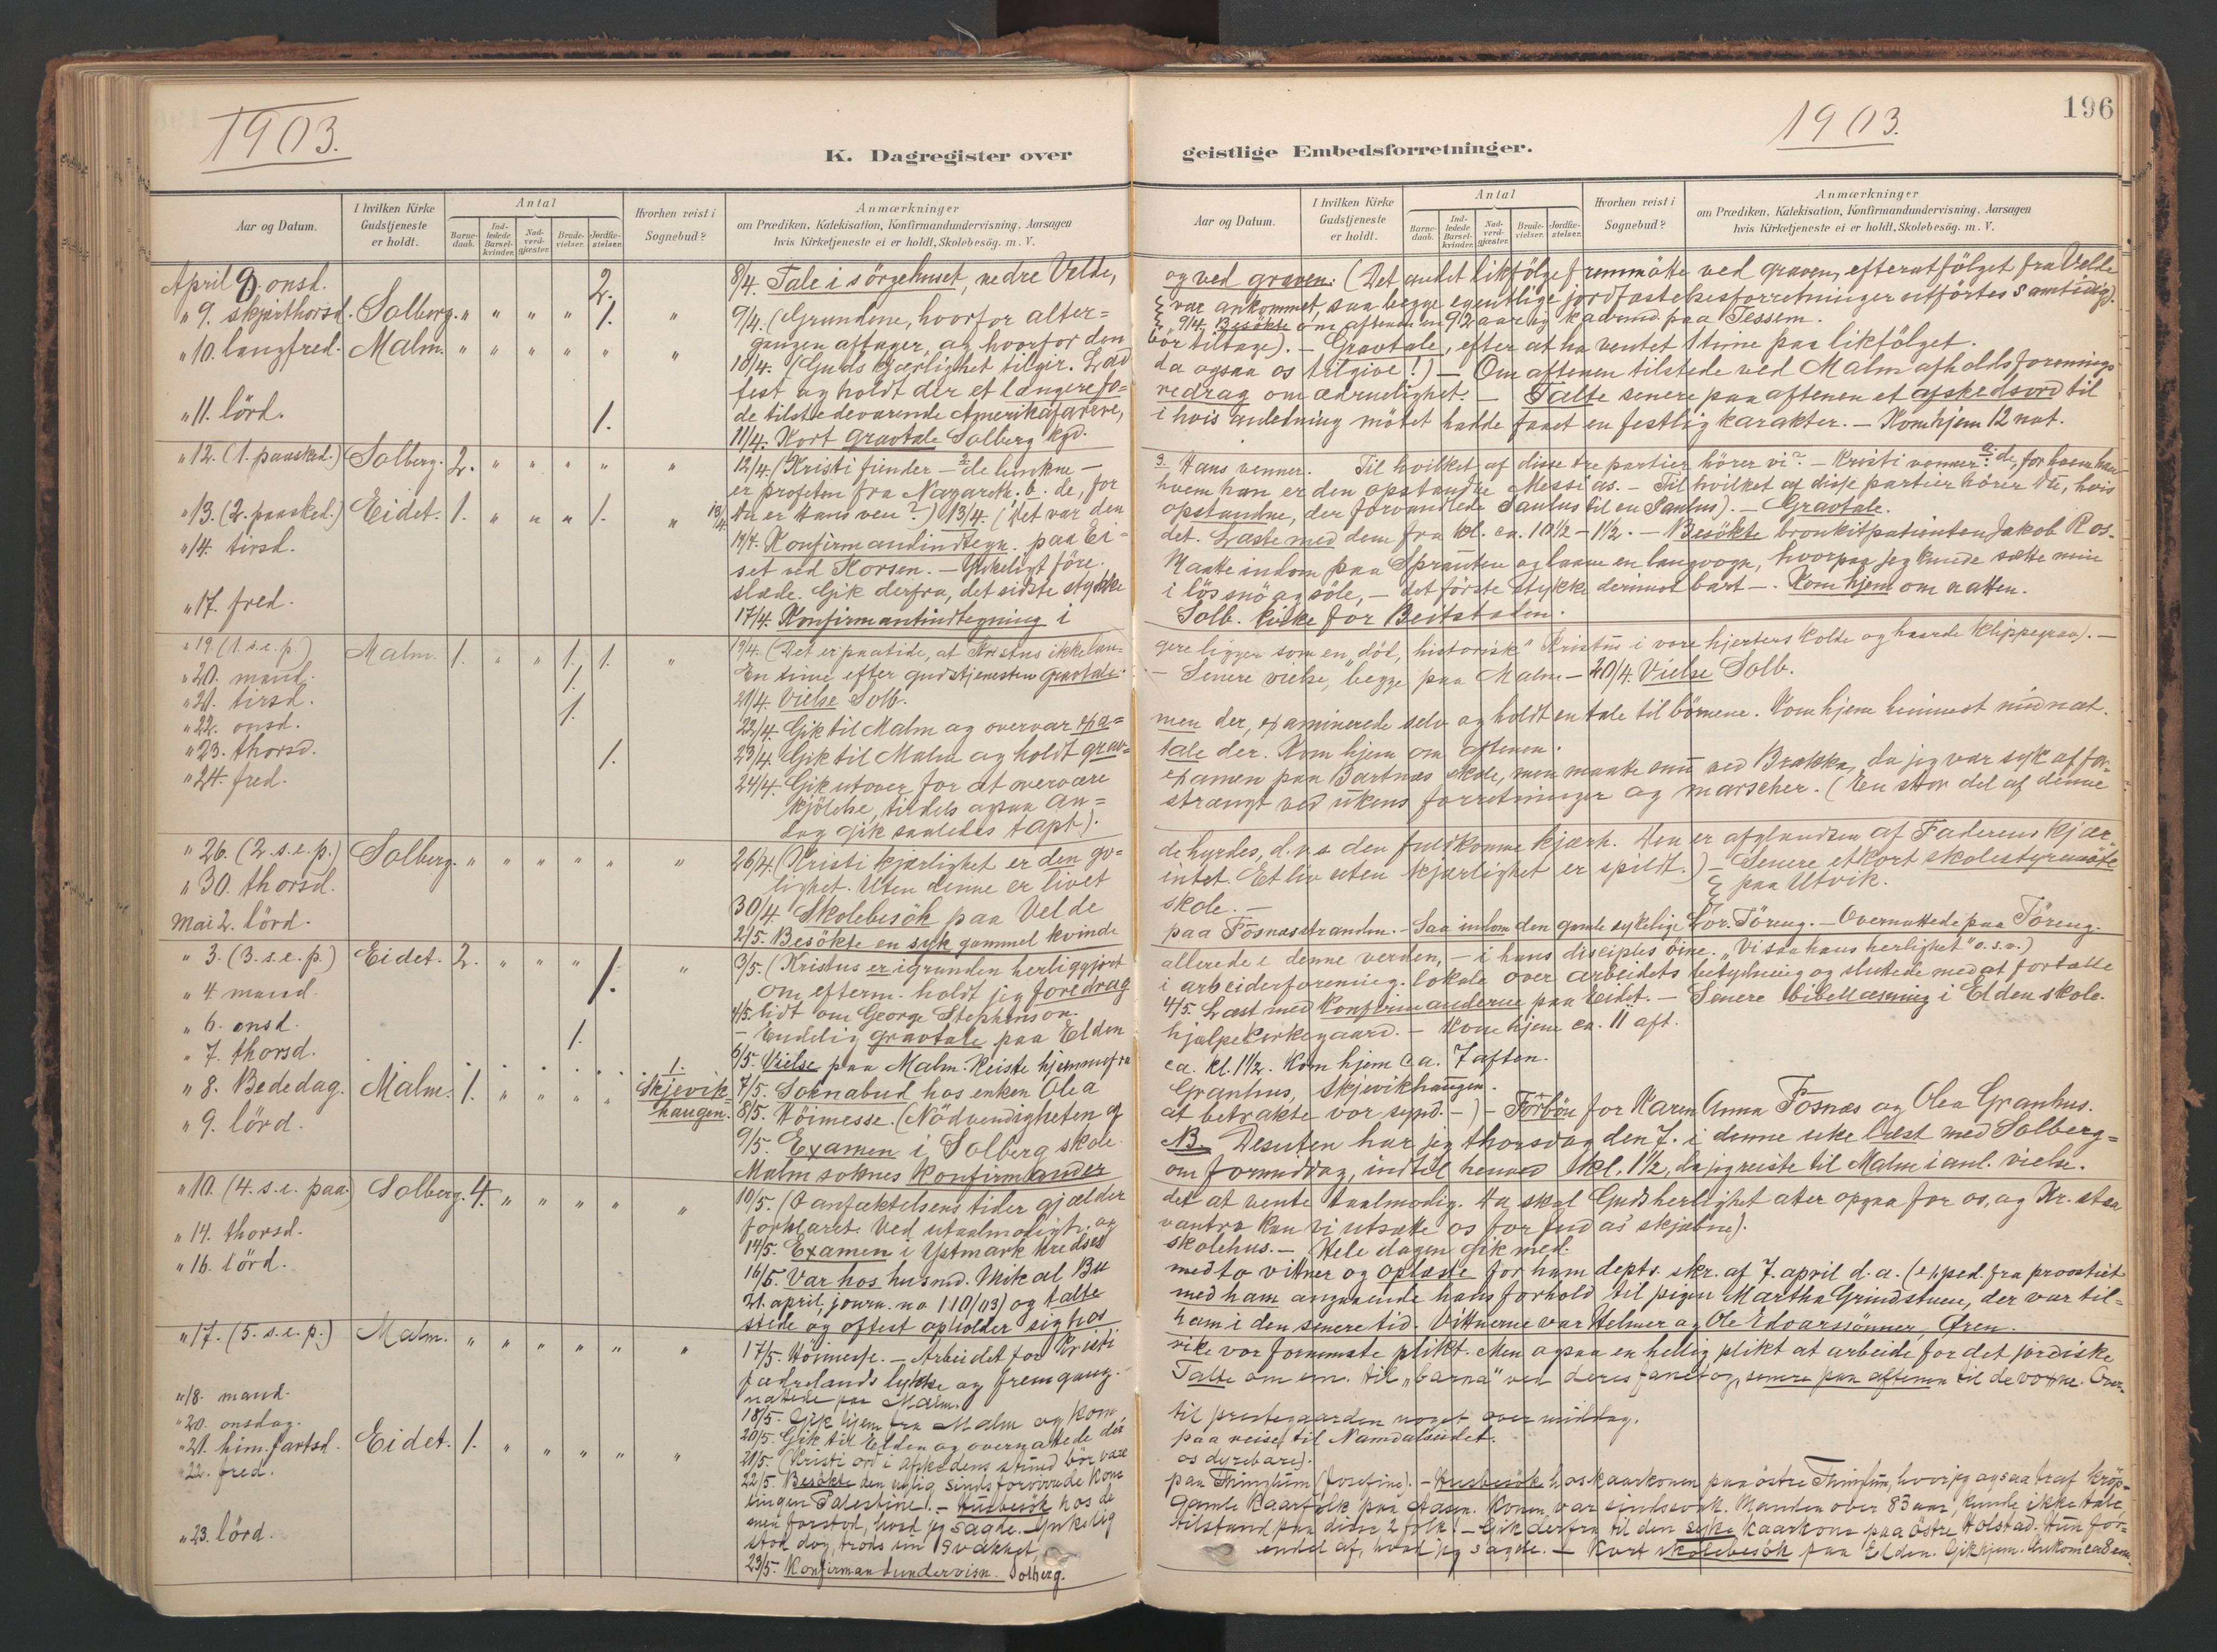 1903.
K. Dagregister over
Aar og Datum.
I hvilken Kirke Gudstjeneste er holdt.
Antal
Barne-daab.
Ind-ledede Barsel-kvinder.
Nad-verd-gjæster.
Brude-vielser.
Jordfæ-stelser.
Hvorhen reist i Sognebud?
Anmærkninger
om Prædiken, Katekisation, Konfirmandundervisning, Aarsagen
hvis Kirketjeneste ei er holdt, Skolebesög. m. V.
April 8. onsd. 2.
" 9. skjærthorsd. Solberg. " " " " 1. "
" 10. langfred. Malm. " " " " " "
" 11. lörd. 1.
" 12. (1. paasked.) Solberg. 2. " " " " "
" 13. (2. paasked.) Eidet. 1. " " " 1. "
" 14. tirsd.
" 17. fred.
" 19. (1. s. e. p.) Malm. 1. " " 1. 1. "
" 20. mand. 1.
" 21. tirsd. 1.
" 22. onsd.
" 23. thorsd. 1.
" 24. fred.
" 26. (2. s. e. p.) Solberg. " " " " " "
" 30. thorsd.
Mai 2. lörd.
" 3. (3. s. e. p.) Eidet. 2. " " " "
" 4. mand. 1.
" 6. onsd. 1.
" 7. thorsd. 1.
" 8. Bededag. Malm. 1. " " " " Skjevik-haugen.
" 9. lörd.
" 10. (4. s. e. paa.) Solberg. 4. " " " " "
" 14. thorsd.
" 16. lörd.
" 17. (5. s. e. p.) Malm. " " " " " "
" 18. mand.
" 20. onsdag.
" 21. him.fartsd. Eidet. 1. " " " " "
" 22. fred.
" 23. lörd.
8/4. Tale i sörgehuset, nedre Velde,
9/4. (Grundene, hvorfor alter=
gangen aftager, og hvorfor den
10/4. (Guds kjærlighet tilgir. Lad
fest og holdt der et længere fo=
de tilstedeværende Amerikafarere,
11/4. Kort gravtale Solberg kgd.
12/4. (Kristi fiender - 2 de lunkne -
er profeten fra Nazareth. b. de, for
du er Hans ven?) 13/4. (Det var den
14/4. Konfirmandindtegn. paa Ei-
set ved Korsen. - Ynkeligt före.
slæde. Gik derfra, det sidste stykke
17/4. Konfirmantindtegning i
19/4. (Det er paatide, at Kristus ikke læn-
En time efter gudstjenesten gravtale.
21/4. Vielse Solb.
22/4. Gik til Malm og overvar exa=
23/4. Gik til Malm og holdt grav=
24/4. Gik utover for at overvære
kjölelse, tildels ogsaa an=
dag gik saaledes tapt).
26/4. (Kristi kjærlighet er den go=
lighet. Uten denne er livet
30/4. Skolebesök paa Velde
2/5. Besökte en syk gammel kvinde
3/5. (Kristus er igrunden herliggjort
om efterm. holdt jeg foredrag
4/5. lidt om George Stephenson.
- Endelig gravtale paa Elden
6/5. Vielse paa Malm. Reiste hjemmefra
7/5. Soknabud hos enken Olea
8/5. Höimesse. (Nödvendigheten af
9/5. Examen i Solberg skole.
Malm soknes Konfirmander
10/5. (I anfæktelsens tider gjælder
forklaret. Ved utaalmodigh. og
14/5. Examen i Ystmark kredses
16/5. Var hos husmd. Mikal Bu
21. april, journ. no 110/03) og talte
stede og oftest opholder sig hos
17/5. Höimesse. - Arbeidet for Kristi
fædrelands lykke og fremgang.
nattede paa Malm.
18/5. Gik hjem fra Malm og kom
20/5. Gik til Elden og overnattede der
21/5. (Kristi ord i afskedens stund bör være
22/5. Besökte den sindsforvirrede kone
ningen Palestine). - Husbesök hos de
men forstod, hvad jeg sagde. Ynkelig
stod dog, trods sin svakhet,
23/5. Konfirmandundervisn. Solberg.
1903.
196
geistlige Embedsforretninger.
Aar og Datum.
I hvilken Kirke Gudstjeneste er holdt.
Antal
Barne-daab.
Ind-ledede Barsel-kvinder.
Nad-verd-gjæster.
Brude-vielser.
Jordfæ-stelser.
Hvorhen reist i Sognebud?
Anmærkninger
om Prædiken, Katekisation, Konfirmandundervisning, Aarsagen
hvis Kirketjeneste ei er holdt, Skolebesög. m. V.
og ved graven. (Det andet likfölge fremmötte ved graven, efterat fölget fra Velde
var ankommet, saa begge egentlige jordfæstelsesforretninger utförtes samtidig).
9/4. Besökte om aftenen en 92 aar paa Tessem.
bör tiltage). - Gravtale, efter at ha ventet 1 time paa likfölget.
da ogsaa os tilgive!) - Om aftenen tilstede ved Malm afholdsforenings
redrag om ædruelighet. - Talte senere paa aftenen et afskedsord til
i hvis anledning mötet hadde faaet en festlig karakter. - Kom hjem 12 nat.
3. Hans venner. Til hvilket af disse tre partier hörer vi? - Kristi venner: a. de, for hvem han
hvem han er den opstandne Messias. - Til hvilket af disse partier hörer du, hvis
opstandne, der forvandlede Saulus til en Paulus). - Gravtale.
det. Læste med dem fra kl. ca. 10½ - 1½. - Besökte bronkitpatienten Jakob Ros-
Maatte indom paa Sprauten og laane en langvogn, hvorpaa jeg kunde sætte min
i lös snö og söle, - det förste stykke derimot bart -. Kom hjem om natten.
Solb. kirke for Beitstaden.
gere ligger som en "död, historisk" Kristus i vore hjerters kolde og haarde klippegrav). -
- Senere vielse, begge paa Malm - 20/4. Vielse Solb.
men der, examinerede selv og holdt en tale til börnene. Kom hjem henimot midnat.
tale der. Kom hjem om aftenen.
examen paa Bartnes skole, men maatte snu ved Brækka, da jeg var syk af for-
strængt ved ukens forretninger og marscher. (En stor del af denne
de hyrdes, d.v.s. den fuldkomne kjærh. Den er afglandsen af Faderens kjær-
intet. Et liv uten kjærlighet er spildt.) - Senere et kort skolestyremöte
paa Utvik.
skole. -
paa Fosnæsstranden. - Saa indom den gamle sykelige Lor. Töreng. - Overnattede paa Töreng.
allerede i denne verden, - i hans disciples öine. "Vi saa hans herlighet" o.s.v.)
i arbeiderforening. lokale over arbeidets betydning og sluttede med at fortælle
4/5. Læst med konfirmanderne paa Eidet. - Senere bibellæsning i Elden skole.
hjælpekirkegaard. - Kom hjem ca. 11 aft.
ca. kl. 1½. Kom hjem ca. 7 aften.
Granhus, Skjevikhaugen.
at betrakte vor synd. -) - Forbön for Karen Anna Fosnæs og Olea Granhus.
NB. Desuten har jeg thorsdag den 7. i denne uke læst med Solberg=
om formiddag, indtil henved kl. 1½, da jeg reiste til Malm i anl. vielse.
det at vente taalmodig. Da skal Guds herlighet atter opgaa for os, og Kr. staa
vantro kan vi utsætte os for Judas' skjæbne).
skolehus. - Hele dagen gik med.
med to vitner og oplæste for ham depts. skr. af 7. april d. a. (exped. fra proostiet
med ham angaaende hans forhold til pigen Martha Grindstuen, der var til-
ham i den senere tid. Vitnerne var Helmer og Ole Edvarssönner, Ören.
rike vor fornemste plikt. Men ogsaa en hellig plikt at arbeide for det jordiske
Talte om em. til "barna" ved deres fanetog, senere paa aftenen til de voxne. Over-
til prestegaarden noget over middag.
paa reise til Namdalseidet.
os dyrebare).
paa Thinghum (Josefine). - Husbesök hos kaarkonen paa östre Thinghum, hvor jeg ogsaa traf kröp-
gamle kaarfolk paa Aasen. Konen var sindssvak. Manden over 83 aar, kunde ikke tale,
tilstand paa disse 2 folk! - Gik derfra til den syke kaarkone paa östre Holstad. Hun for-
endel af, hvad jeg sagde. - Kort skolebesök paa Elden. Gik hjem. Ankom ca 8 em.